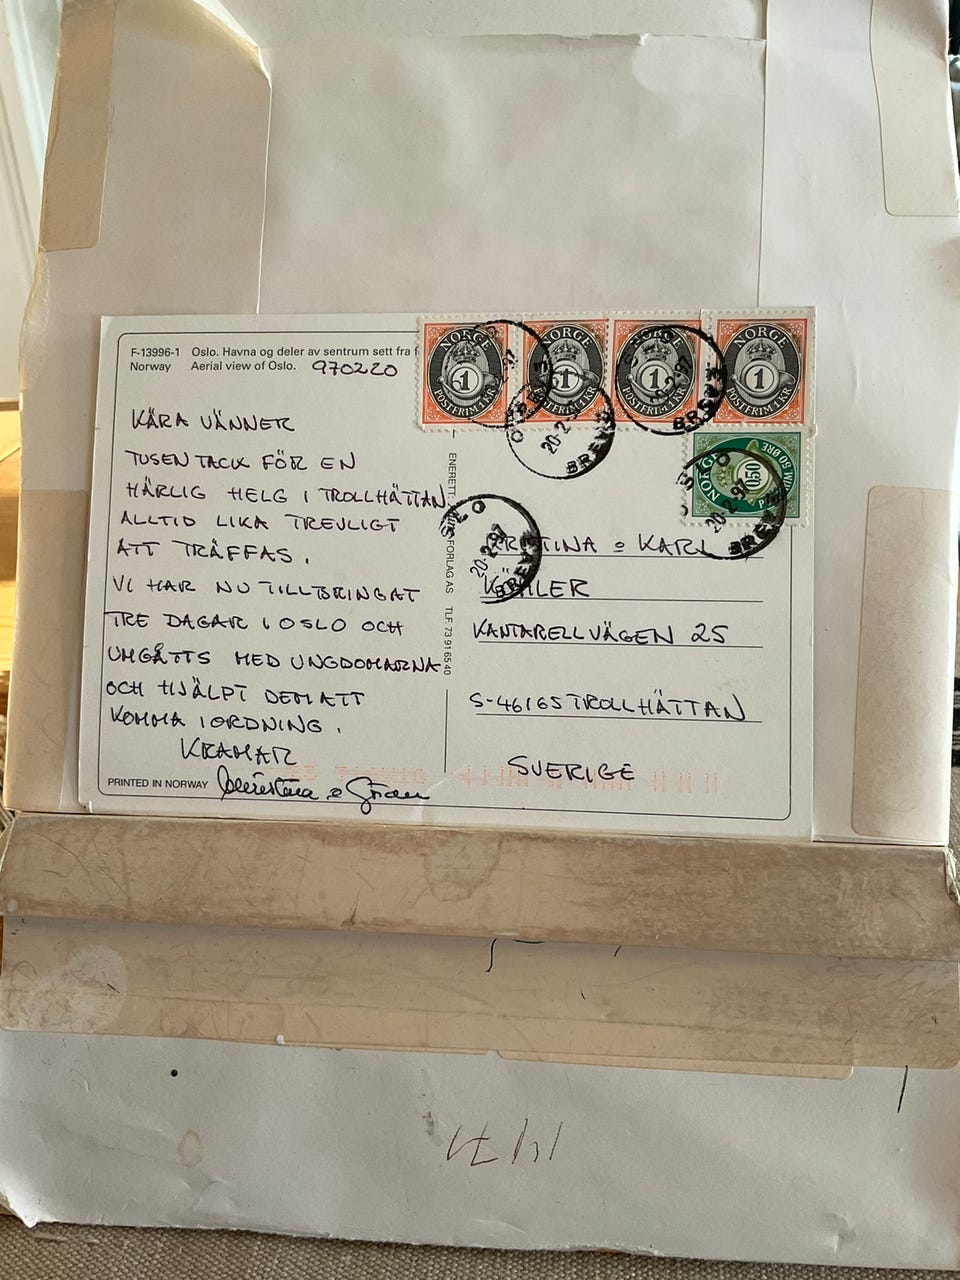 F-13996-1 Oslo. Havna og deler av sentrum sett fra f
Norway Aerial view of Oslo. 970220
KÄRA VÄNNER
TUSEN TACK FÖR EN
HÄRLIG HELG I TROLLHÄTTAN.
ALLTID LIKA TREVLIGT
ATT TRÄFFAS.
VI HAR NU TILLBRINGAT
TRE DAGAR I OSLO OCH
UMGÅTTS MED UNGDOMARNA
OCH HJÄLPT DEM ATT
KOMMA I ORDNING.
KRAMAR
PRINTED IN NORWAY
ENERETT: FORLAG AS TLF. 73 91 65 40
NORGE 1 POSTFRIM. 1 KR
NORGE 1 POSTFRIM. 1 KR
NORGE 1 POSTFRIM. 1 KR
NORGE 1 POSTFRIM. 1 KR
NORGE 050 50 ØRE
20.2.97
20.2.97
20.2.97
20.2.97
KARL
KANTARELLVÄGEN 25
S-46165 TROLLHÄTTAN
SVERIGE